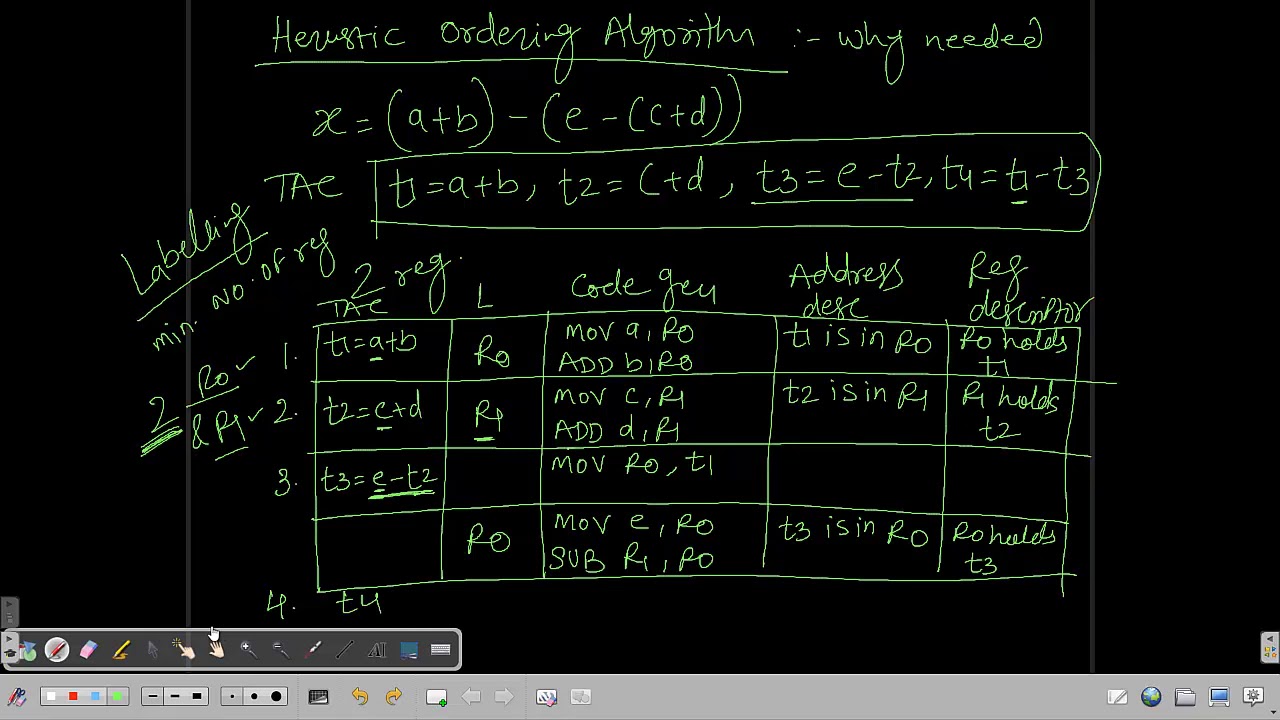 Herustic Ordering Algorithm :- why needed
x = (a+b) - (e - (c+d))
TAC t1 = a+b, t2 = c+d, t3 = e-t2, t4 = t1-t3
Labelling
min. no. of reg
2 R0 & R1
2 reg.
TAC L Code gen Address desc Reg descriptor
1. t1 = a+b R0 MOV a, R0 t1 is in R0 R0 holds
ADD b, R0 t1
2. t2 = c+d R1 MOV c, R1 t2 is in R1 R1 holds
ADD d, R1 t2
3. t3 = e-t2 MOV R0, t1
R0 MOV e, R0 t3 is in R0 R0 holds
SUB R1, R0 t3
4. t4
AI